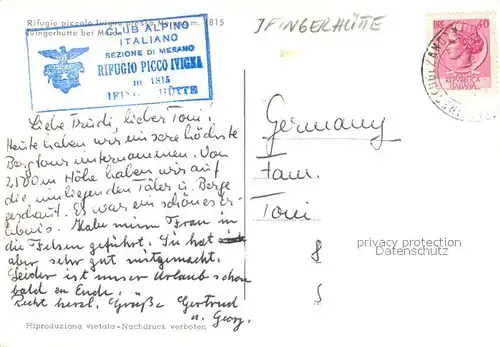 Rifugio piccolo Ivigna presso Merano m. 1815
Ivingerhütte bei Meran
CLUB ALPINO
ITALIANO
SEZIONE DI MERANO
RIFUGIO PICCO IVIGNA
m 1815
IFINGER HÜTTE
IFINGERHÜTTE
LIRE 40
ITALIANA
Liebe Trudi, lieber Toni!
Heute haben wir unsere höchste
Bergtour unternommen. Von
2100 m Höhe haben wir auf
die umliegenden Täler u. Berge
geschaut. Es war ein schönes Er-
lebnis. Habe meine Frau in
die Felsen geführt. Sie hat
aber sehr gut mitgemacht.
Leider ist unser Urlaub schon
bald zu Ende.
Recht herzl. Grüße Gertrud
u. Georg.
Germany
Fam.
Toni
8
privacy protection
Datenschutz
Riproduzione vietata-Nachdruck verboten